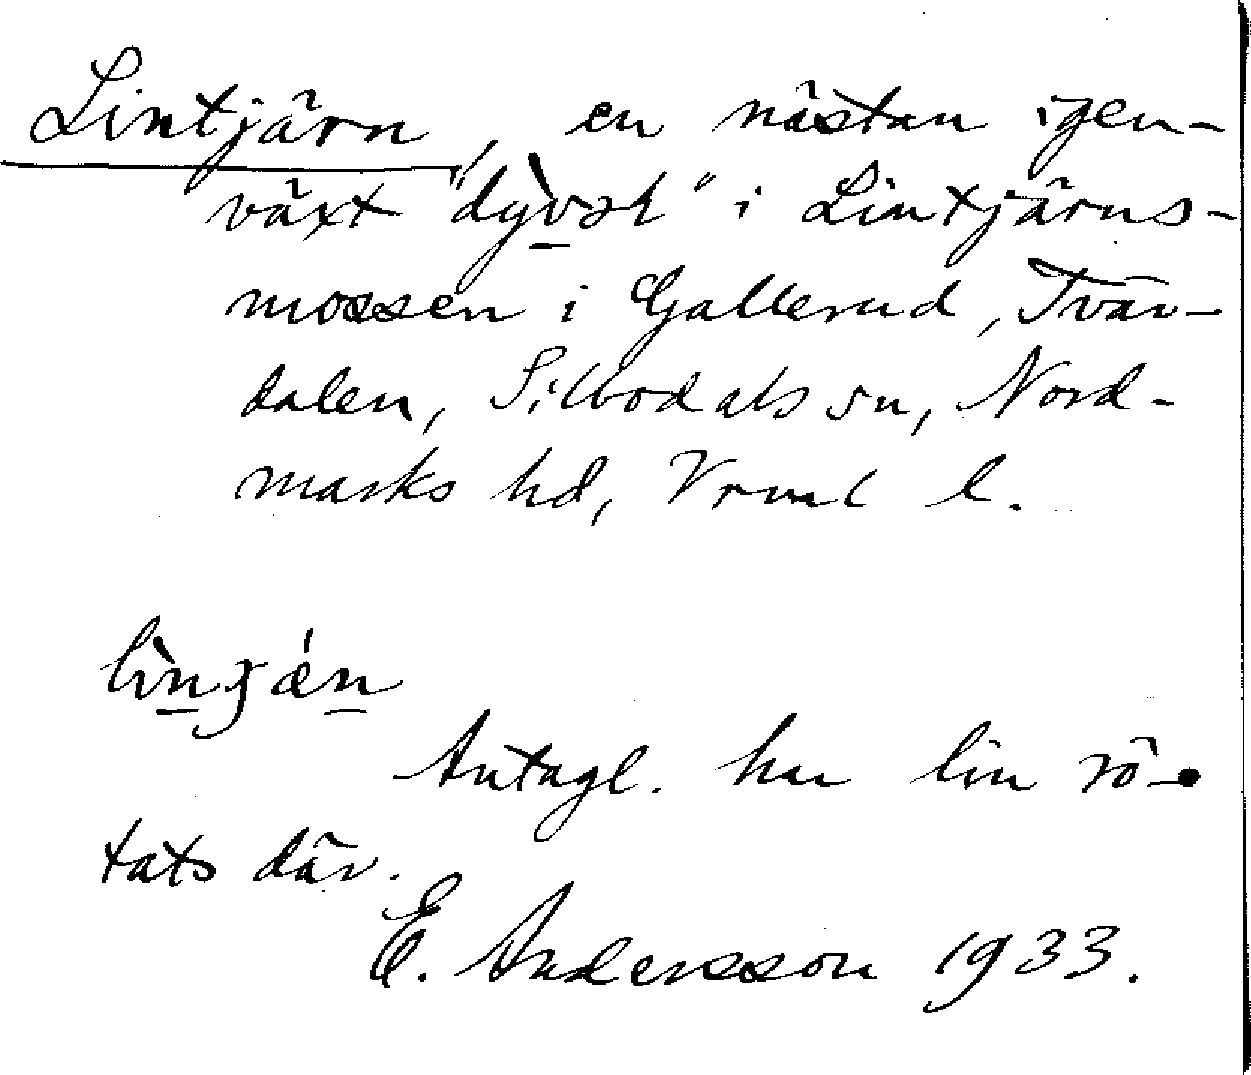 Lintjärn, en nästan igen-
växt "dỳvəl" i Lintjärns-
mossen i Gallerud, Tvär-
dalen, Silbodals sn, Nord-
marks hd, Vrml l.
Antagl. har lin rö-
tats där.
E. Andersson 1933.